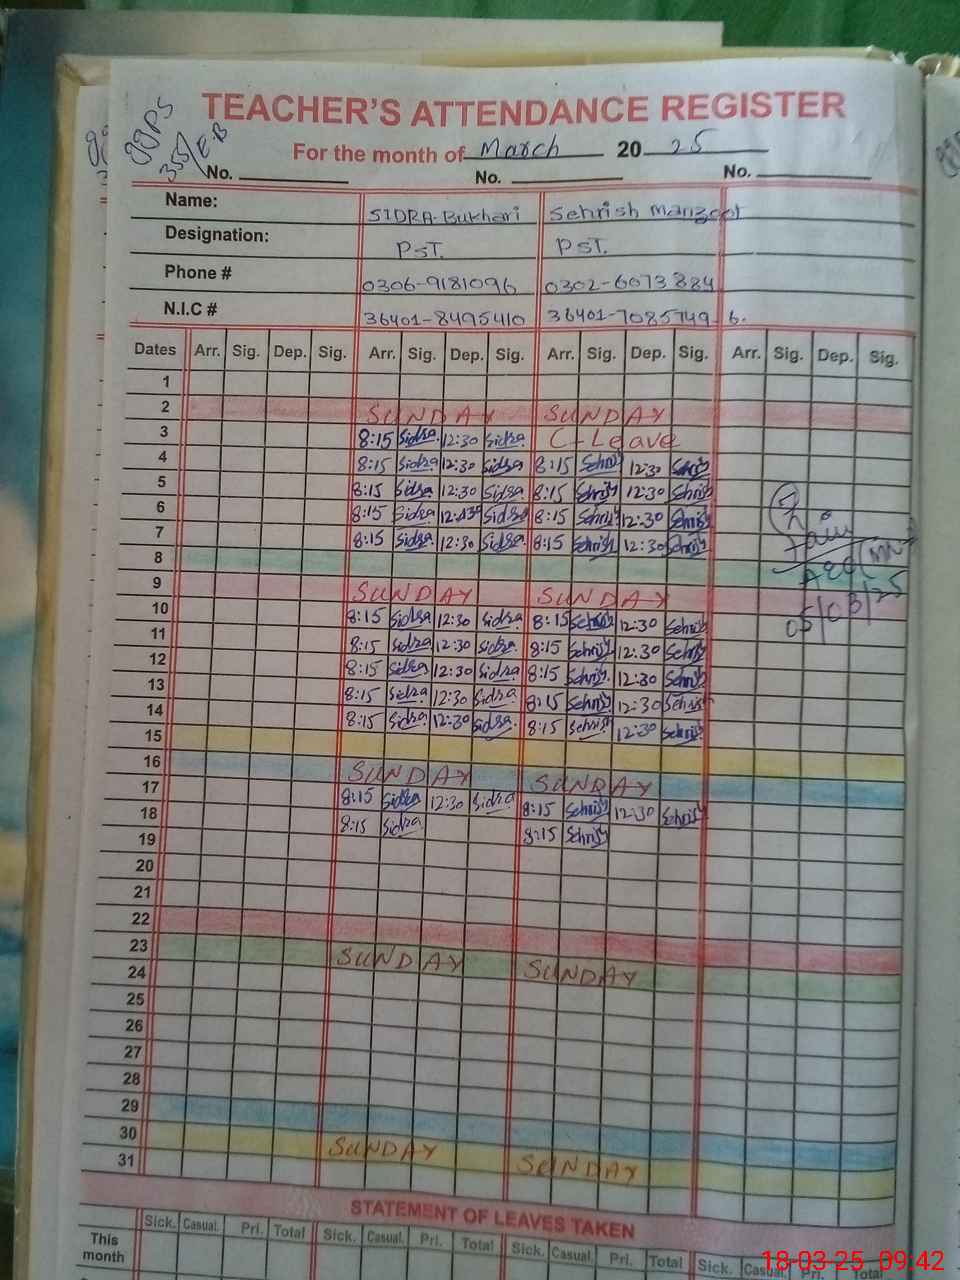 ggPS
355/EB
TEACHER'S ATTENDANCE REGISTER
For the month of March 2025
No. No. No.
Name: SIDRA Bukhari Sehrish manzoor
Designation: PST. PST.
Phone # 0306-9181096 0302-6073884
N.I.C # 36401-8495410 36401-7085749-6.
Dates Arr. Sig. Dep. Sig. Arr. Sig. Dep. Sig. Arr. Sig. Dep. Sig. Arr. Sig. Dep. Sig.
1
2 SUNDAY SUNDAY
3 8:15 Sidra 12:30 Sidra C-Leave
4 8:15 Sidra 12:30 Sidra 8:15 Sehrish 12:30 Sehrish
5 8:15 Sidra 12:30 Sidra 8:15 Sehrish 12:30 Sehrish
6 8:15 Sidra Sidra 8:15 Sehrish 12:30 Sehrish
7 8:15 Sidra 12:30 Sidra 8:15 Sehrish 12:30 Sehrish
8
05/03/25
9 SUNDAY SUNDAY
10 8:15 Sidra 12:30 Sidra 8:15 Sehrish 12:30 Sehrish
11 8:15 Sidra 12:30 Sidra 8:15 Sehrish 12:30 Sehrish
12 8:15 Sidra 12:30 Sidra 8:15 Sehrish 12:30 Sehrish
13 8:15 Sidra 12:30 Sidra 8:15 Sehrish 12:30 Sehrish
14 8:15 Sidra 12:30 Sidra 8:15 Sehrish 12:30 Sehrish
15
16 SUNDAY SUNDAY
17 8:15 Sidra 12:30 Sidra 8:15 Sehrish 12:30 Sehrish
18 8:15 Sidra 8:15 Sehrish
19
20
21
22
23 SUNDAY SUNDAY
24
25
26
27
28
29
30 SUNDAY SUNDAY
31
STATEMENT OF LEAVES TAKEN
Sick. Casual. Pri. Total Sick. Casual. Pri. Total Sick. Casual. Pri. Total Sick. Casual. Pri. Total
This month
18-03-25 09:42